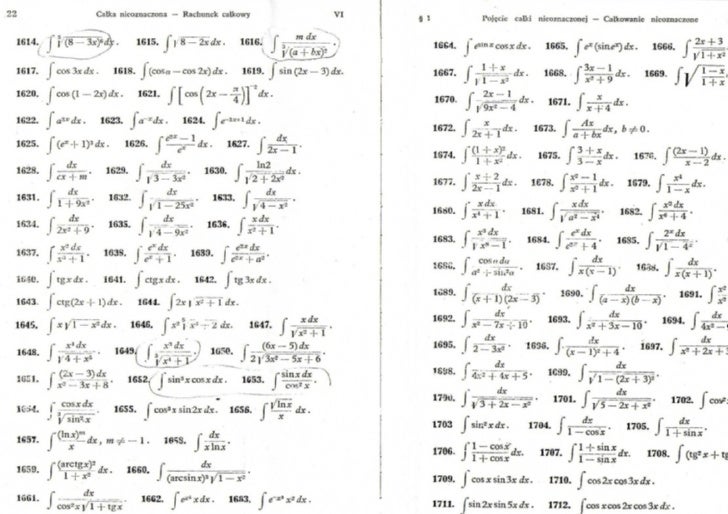 22 Całka nieoznaczona — Rachunek całkowy VI
1614. ∫ ⁵√(8 − 3x)⁶ dx. 1615. ∫ √8 − 2x dx. 1616. ∫ m dx / ³√(a + bx)²
1617. ∫ cos 3x dx. 1618. ∫ (cos a − cos 2x) dx. 1619. ∫ sin (2x − 3) dx.
1620. ∫ cos (1 − 2x) dx. 1621. ∫ [cos (2x − π/4)]⁻² dx.
1622. ∫ a³ˣ dx. 1623. ∫ a⁻ˣ dx. 1624. ∫ e⁻³ˣ⁺¹ dx.
1625. ∫ (eˣ + 1)³ dx. 1626. ∫ (e³ˣ − 1) / eˣ dx. 1627. ∫ dx / (2x − 1).
1628. ∫ dx / (cx + m). 1629. ∫ dx / √3 − 3x². 1630. ∫ ln2 / √2 + 2x² dx.
1631. ∫ dx / (1 + 9x²). 1632. ∫ dx / √1 − 25x². 1633. ∫ dx / √4 − x².
1634. ∫ dx / (2x² + 9). 1635. ∫ dx / √4 − 9x². 1636. ∫ x dx / (x² + 1).
1637. ∫ x² dx / (x³ + 1). 1638. ∫ eˣ dx / (eˣ + 1). 1639. ∫ e²ˣ dx / (e²ˣ + a²).
1640. ∫ tg x dx. 1641. ∫ ctg x dx. 1642. ∫ tg 3x dx.
1643. ∫ ctg (2x + 1) dx. 1644. ∫ 2x √x² + 1 dx.
1645. ∫ x √1 − x² dx. 1646. ∫ x² ⁵√x³ + 2 dx. 1647. ∫ x dx / √x² + 1.
1648. ∫ x⁴ dx / √4 + x⁵. 1649. ∫ x³ dx / ³√x⁴ + 1. 1650. ∫ (6x − 5) dx / 2√3x² − 5x + 6.
1651. ∫ (2x − 3) dx / (x² − 3x + 8). 1652. ∫ sin³ x cos x dx. 1653. ∫ sin x dx / cos² x.
1654. ∫ cos x dx / ³√sin² x. 1655. ∫ cos³ x sin 2x dx. 1656. ∫ √ln x / x dx.
1657. ∫ (ln x)ᵐ / x dx, m ≠ −1. 1658. ∫ dx / x ln x.
1659. ∫ (arctg x)² / (1 + x²) dx. 1660. ∫ dx / (arcsin x)³ √1 − x².
1661. ∫ dx / cos² x √1 + tg x 1662. ∫ x dx. 1663. ∫ x² dx.
§ 1 Pojęcie całki nieoznaczonej — Całkowanie nieoznaczone
1664. ∫ eˢⁱⁿ ˣ cos x dx. 1665. ∫ eˣ (sin eˣ) dx. 1666. ∫ 2x + 3 / √1 + x²
1667. ∫ 1 + x / √1 − x² dx. 1668. ∫ (3x − 1) / (x² + 9) dx. 1669. ∫ √(1 − x) / (1 + x)
1670. ∫ 2x − 1 / √9x² − 4 dx. 1671. ∫ x / (x + 4) dx.
1672. ∫ x / (2x + 1) dx. 1673. ∫ Ax / (a + bx) dx, b ≠ 0.
1674. ∫ (1 + x)² / (1 + x²) dx. 1675. ∫ (3 + x) / (3 − x) dx. 1676. ∫ (2x − 1) / (x − 2) dx.
1677. ∫ (x + 2) / (2x − 1) dx. 1678. ∫ (x² − 1) / (x² + 1) dx. 1679. ∫ x⁴ / (1 − x) dx.
1680. ∫ x dx / (x⁴ + 1). 1681. ∫ x dx / √a² − x⁴. 1682. ∫ x² dx / (x⁶ + 4).
1683. ∫ x³ dx / √x⁸ − 1. 1684. ∫ eˣ dx / (e²ˣ + 4). 1685. ∫ 2ˣ dx / √1 − 4ˣ.
1686. ∫ cos α dα / (a² + sin² α). 1687. ∫ dx / x(x − 1). 1688. ∫ dx / x(x + 1).
1689. ∫ dx / (x + 1)(2x − 3). 1690. ∫ dx / (a − x)(b − x). 1691. ∫ x²
1692. ∫ dx / (x² − 7x + 10). 1693. ∫ dx / (x² + 3x − 10). 1694. ∫ dx / 4x² −
1695. ∫ dx / (2 − 3x²). 1696. ∫ dx / ((x − 1)² + 4). 1697. ∫ dx / x² + 2x +
1698. ∫ dx / (4x² + 4x + 5). 1699. ∫ dx / √1 − (2x + 3)².
1700. ∫ dx / √3 + 2x − x². 1701. ∫ dx / √5 − 2x + x². 1702. ∫ cos²
1703 ∫ sin² x dx. 1704. ∫ dx / (1 − cos x). 1705. ∫ dx / (1 + sin x).
1706. ∫ (1 − cos x) / (1 + cos x) dx. 1707. ∫ (1 + sin x) / (1 − sin x) dx. 1708. ∫ (tg² x + tg
1709. ∫ cos x sin 3x dx. 1710. ∫ cos 2x cos 3x dx.
1711. ∫ sin 2x sin 5x dx. 1712. ∫ cos x cos 2x cos 3x dx.